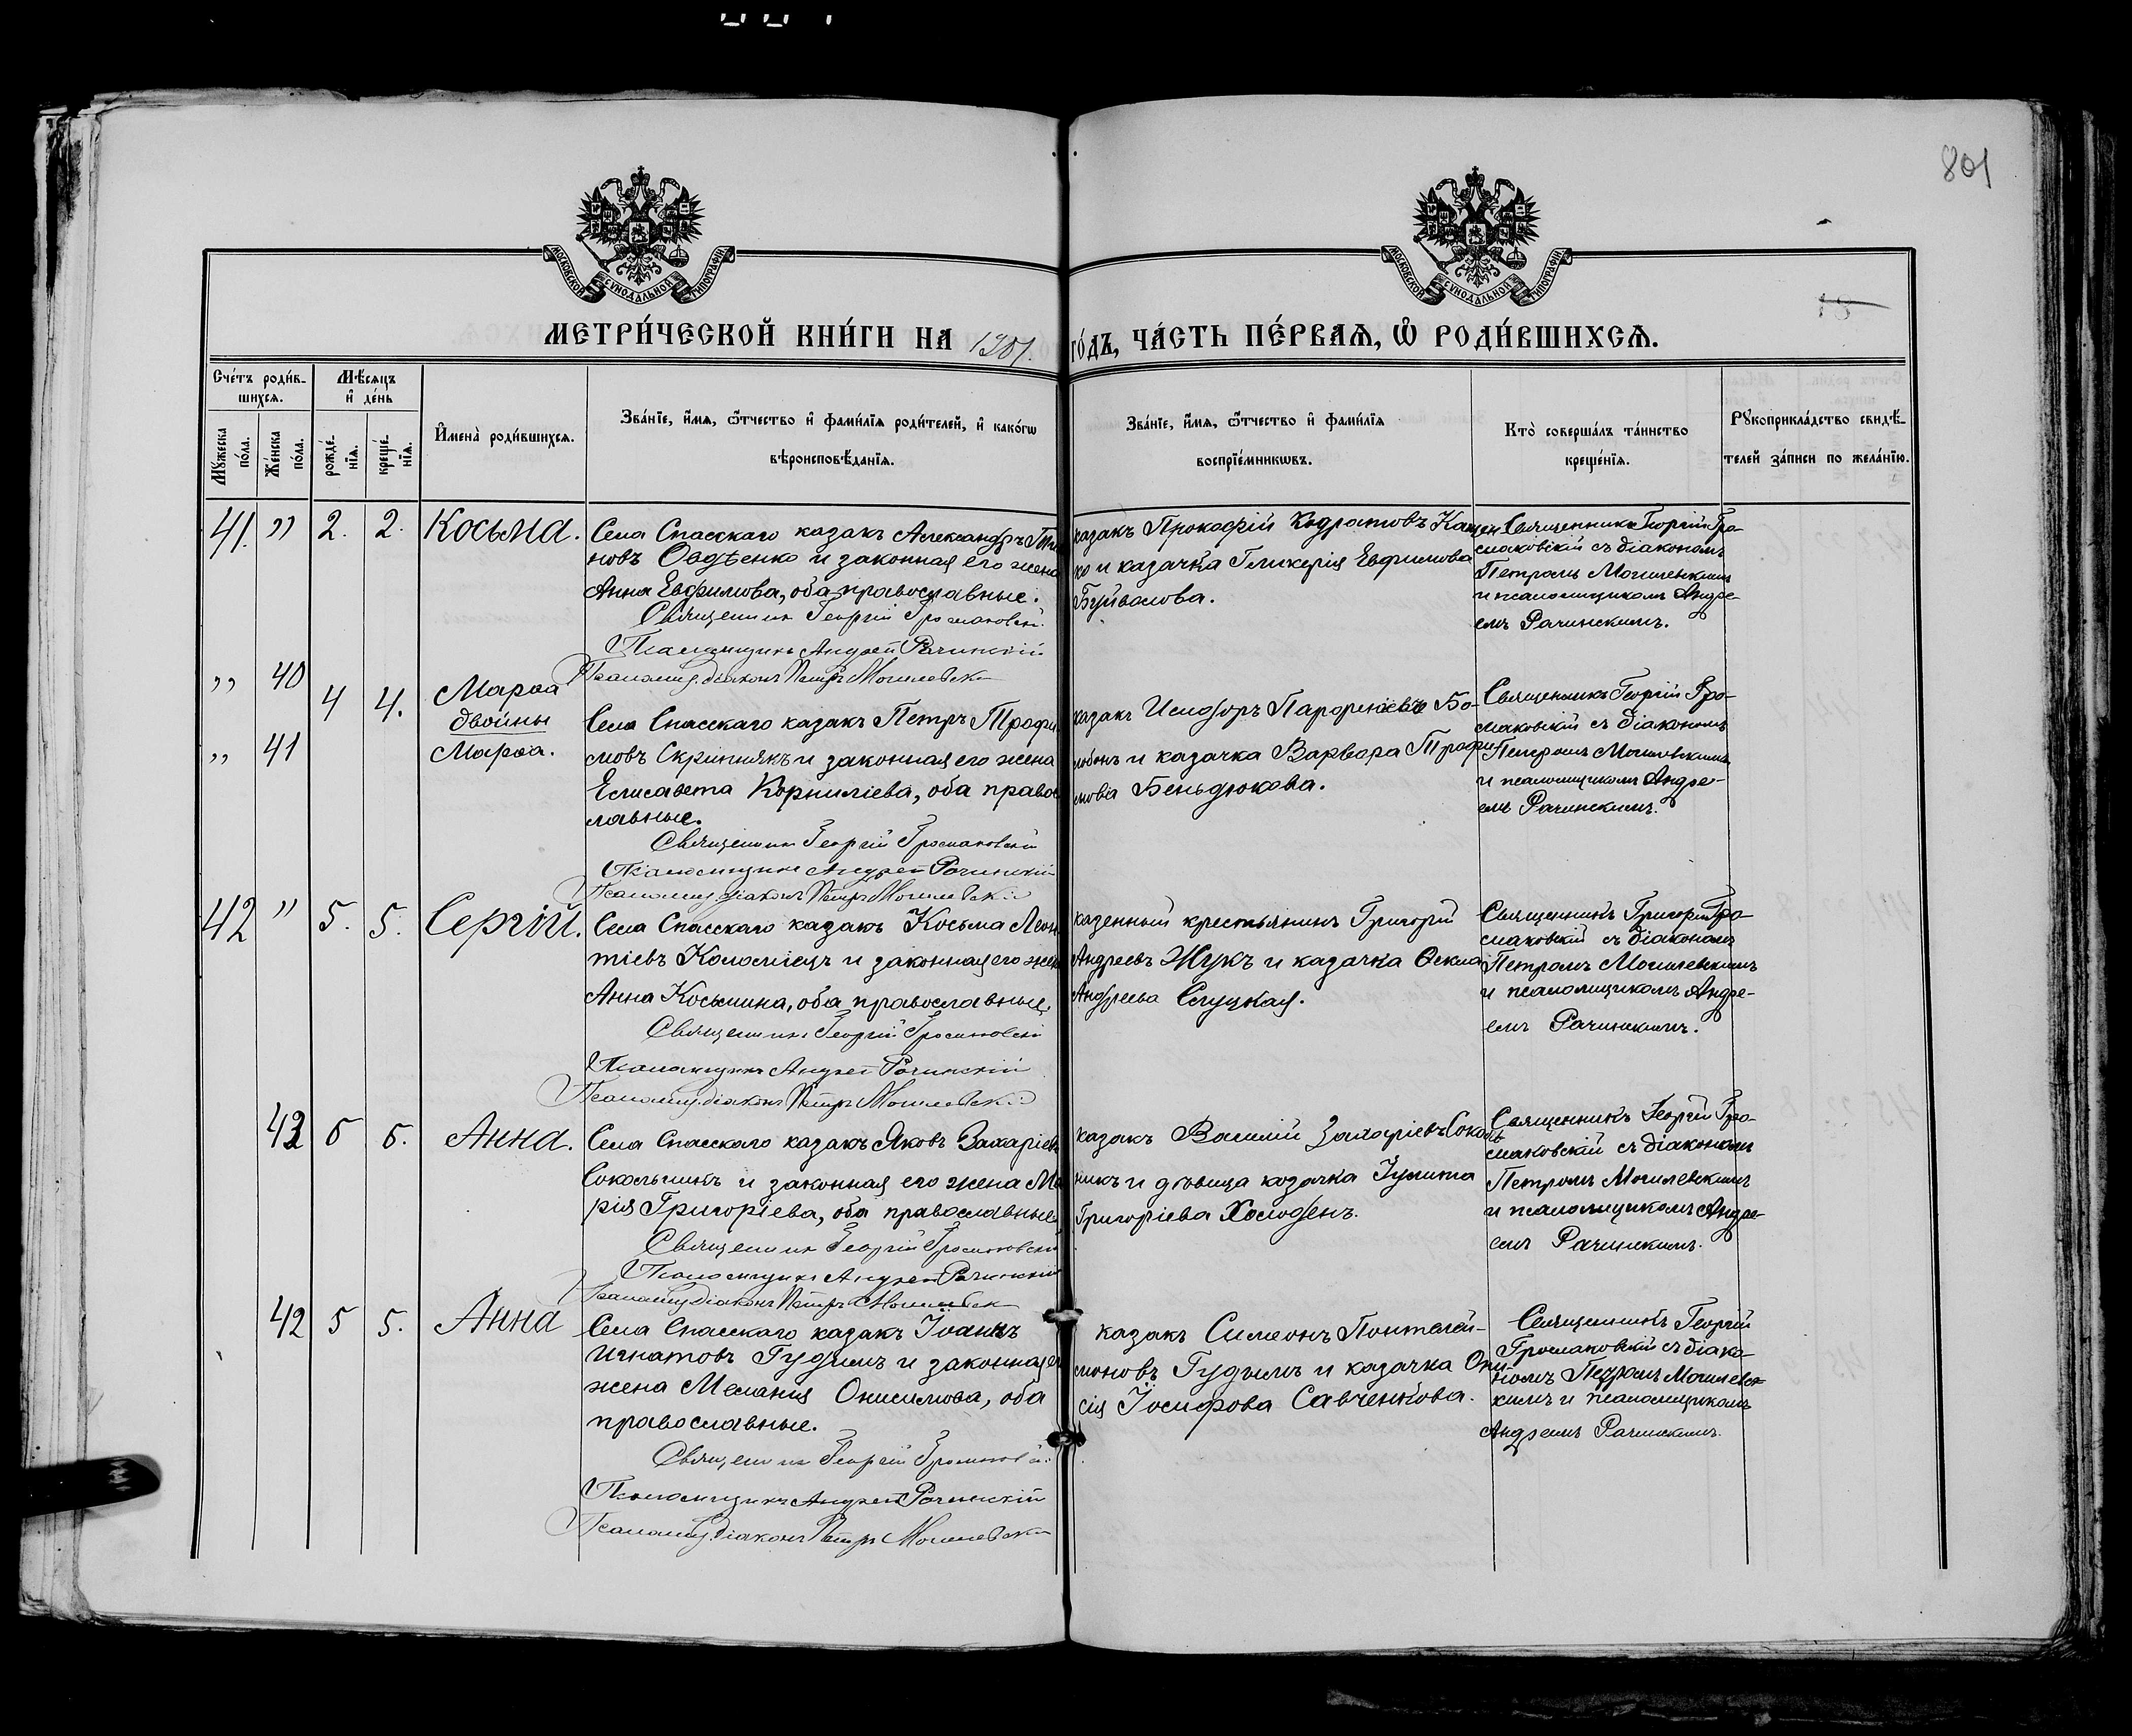 801
МОСКОВСКОЙ СУНОДАЛЬНОЙ ТИПОГРАФІИ
МОСКОВСКОЙ СУНОДАЛЬНОЙ ТИПОГРАФІИ
15
МЕТРИ́ЧЕСКОЙ КНИ́ГИ НА 1901. ГО́ДЪ, ЧА́СТЬ ПЕ́РВАѦ, Ѡ҆ РОДИ́ВШИХСѦ.
Сче́тъ роди́в-
шихсѧ.
Мѣ́сѧцъ
и҆ де́нь
Мꙋ́жеска
по́ла.
Же́нска
по́ла.
рожде́-
нїѧ.
креще́-
нїѧ.
И҆мена̀ роди́вшихсѧ.
Зва́нїе, и҆́мѧ, ѻ҆́тчество и҆ фами́лїѧ роди́телей, и҆ како́гѡ
вѣроисповѣ́данїѧ.
Зва́нїе, и҆́мѧ, ѻ҆́тчество и҆ фами́лїѧ
воспрїе́мникѡвъ.
Кто̀ соверша́лъ та́инство
креще́нїѧ.
Рꙋкоприкла́дство свидѣ́-
телей за́писи по жела́нїю.
41. " 2. 2. Косьма.
Села Спасскаго казакъ Александръ
новъ Овдѣенко и законная его жена
Анна Евфимова, оба православные.
Священникъ Георгій Громаковскій
Псаломщикъ Андрей Рачинскій
Псаломщ. діаконъ Петръ Могилевскій
казакъ Прокофій Кодратовъ Кащен
ко и казачка Гликерія Евфимова
Буйвалова.
Священникъ Георгій Гро-
маковскій съ діакономъ
Петромъ Могилевскимъ
и псаломщикомъ Андре-
емъ Рачинскимъ.
" 40 4 4. Марѳа
двойни
" 41 Марѳа.
Села Спасскаго казакъ Петръ Трофи
мовъ Скрипнякъ и законная его жена
Елисавета Корниліева, оба правос
лавные.
Священникъ Георгій Громаковскій
Псаломщикъ Андрей Рачинскій
Псаломщ. діаконъ Петръ Могилевскій
казакъ Исидоръ Парфеніевъ Бо-
и казачка Варвара Трофи
мова Бендюкова.
Священникъ Георгій Гро-
маковскій съ діакономъ
Петромъ Могилевскимъ
и псаломщикомъ Андре-
емъ Рачинскимъ.
42 " 5. 5. Сергій.
Села Спасскаго казакъ Косьма Леон
тіевъ Коломіецъ и законная его жен
Анна Косьмина, оба православные.
Священникъ Георгій Громаковскій
Псаломщикъ Андрей Рачинскій
Псаломщ. діаконъ Петръ Могилевскій
казенный крестьянинъ Григорій
Андреевъ Жукъ и казачка Ѳекла
Андреева Слуцкая.
Священникъ Григорій Гро-
маковскій съ діакономъ
Петромъ Могилевскимъ
и псаломщикомъ Андре-
емъ Рачинскимъ.
43 5 5. Анна.
Села Спасскаго казакъ Яковъ Захаріев
Сокольникъ и законная его жена Ма
рія Григоріева, оба православные
Священникъ Георгій Громаковскій
Псаломщикъ Андрей Рачинскій
Псаломщ. діаконъ Петръ Могилевск
казакъ Василій Захаріевъ Соколь
никъ и дѣвица козачка Іулита
Григоріева Холоденъ.
Священникъ Георгій Гро-
маковскій съ діакономъ
Петромъ Могилевскимъ
и псаломщикомъ Андре-
емъ Рачинскимъ.
42 5 5. Анна
Села Спасскаго казакъ Іоаннъ
Игнатовъ Гудимъ и законная ег
жена Меланія Онисимова, оба
православные.
Священникъ Георгій Громаковскій
Псаломщикъ Андрей Рачинскій
Псаломщ. діаконъ Петръ Могилевскій
казакъ Симеонъ Понтелей-
моновъ Гудымъ и казачка Они
сія Іосифова Савченкова.
Священникъ Георгій
Громаковскій съ діако-
номъ Петромъ Могилевс-
кимъ и псаломщикомъ
Андреемъ Рачинскимъ.